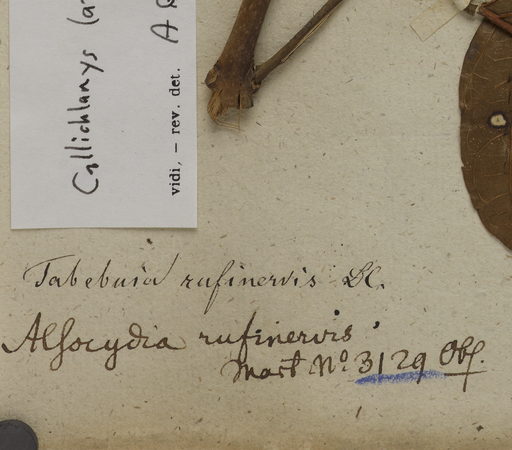 Callichlamys (
vidi, – rev. det. A
Tabebuia rufinervis DC.
Alsocydia rufinervis
Mart No 3129 Obs.